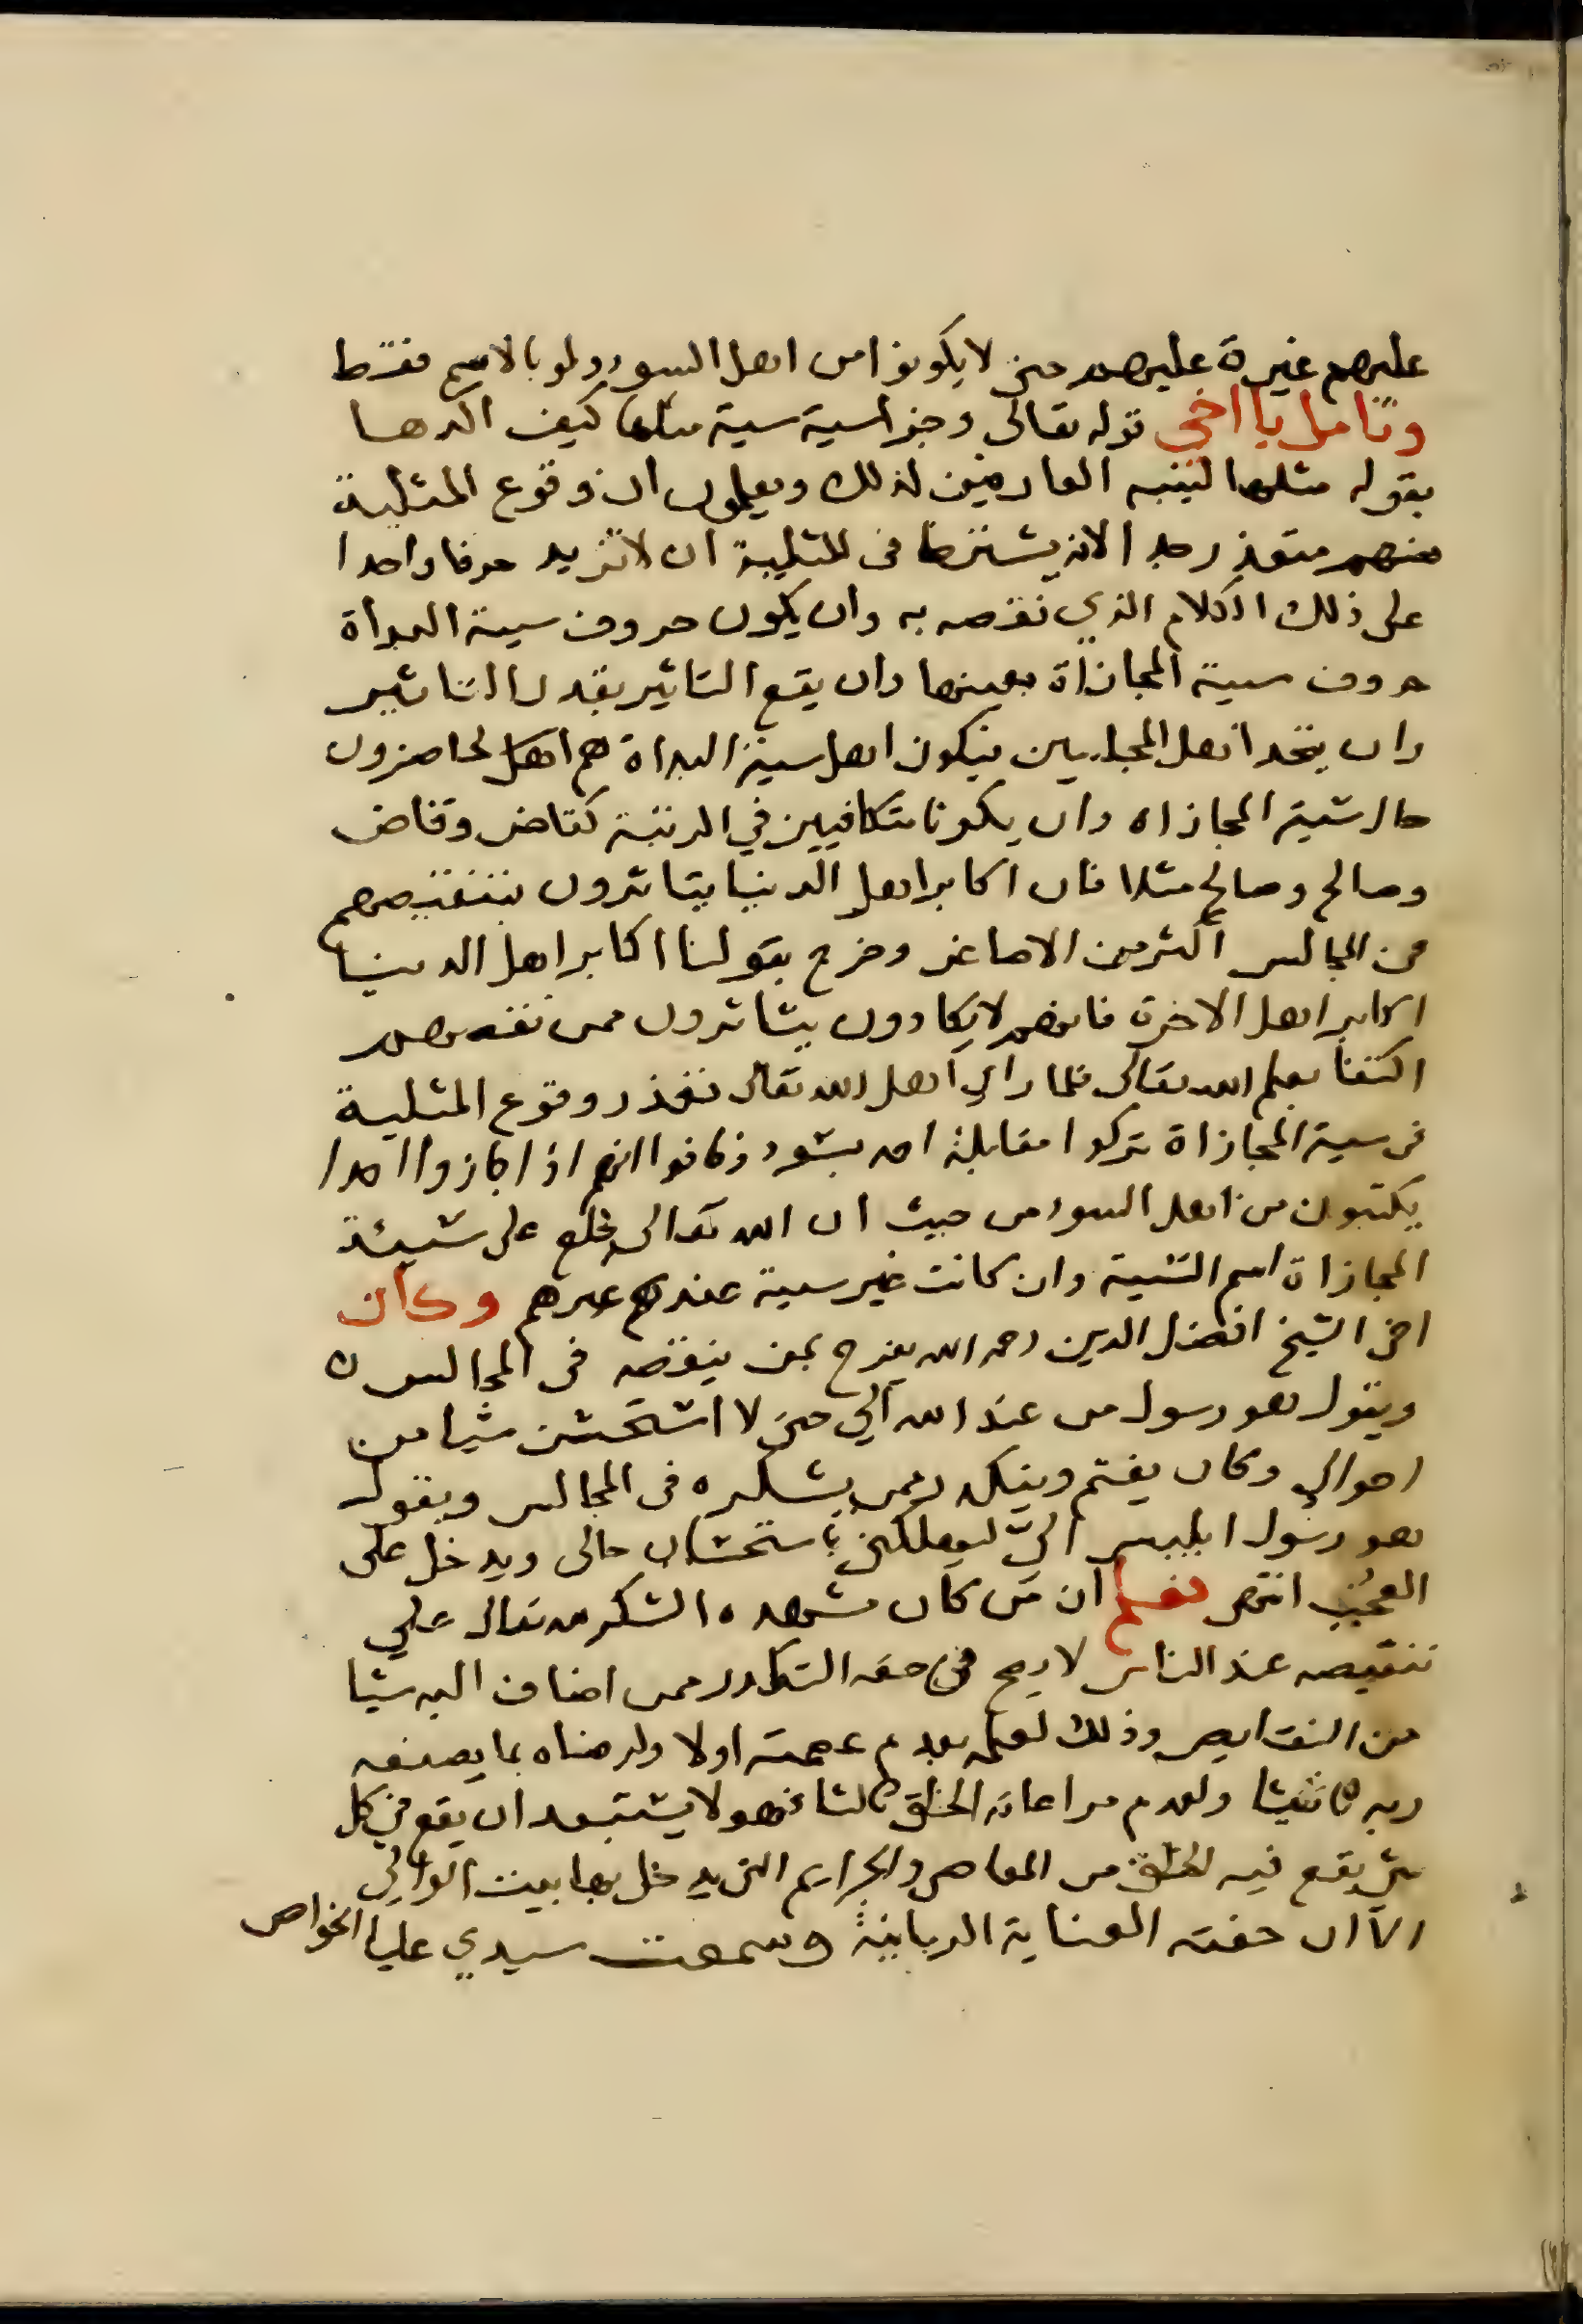 عليهم غيرة عليهم حتى لا يكونوا من اهل السوء ولو بالاسم فقط
وتامل يا اخي قوله تعالى وجزاسية سية مثلها كيف اكدها
بقوله مثلها لينبه العارفين لذلك ويعلمون ان وقوع المثلية
منهم متعذر جدا لانه يشترط في المثلية ان لا تزيد حرفا واحدا
على ذلك الكلام الذي نقصه به وان يكون حروف سية البداة
حروف سية المجازاة بعينها وان يقع التاثير بقدر التاثير
وان يتحد اهل المجلسين فيكون اهل سية البداة هم اهل الحاضرون
حال سية المجازاه وان يكونا متكافيين في الرتبة كقاض وقاض
وصالح وصالح مثلا فان اكابر اهل الدنيا يتاثرون بتنقيصهم
في المجالس اكثر من الاصاغر وخرج بقولنا اكابر اهل الدنيا
اكابر اهل الاخرة فانهم لا يكادون يتاثرون ممن نقصهم
اكتفا بعلم الله تعالى فلما راي اهل الله تعالى تعذر وقوع المثلية
في سية المجازاة تركوا مقابلة احد بسوء وخافوا انهم اذا جازوا احدا
يكتبون من اهل السوء من حيث ان الله تعالى خلع على سيئة
المجازاة اسم السية وان كانت غير سية عندهم وكان
اخي الشيخ افضل الدين رحمه الله يفرح بمن ينقصه في المجالس
ويقول هو رسول من عند الله الي حتى لا استحسن شيا من
احوالي وكان يغتم ويتكدر ممن يشكره في المجالس ويقول
هو رسول ابليس اليّ ليهلكني باستحسان حالى ويدخل على
العجب انتهى فعلم ان من كان مشهده الشكر لله تعالى علي
تنقيصه عند الناس لا يصح في حقه التكدر ممن اضاف اليه شيا
من النقايص وذلك لعلمه بعدم عصمته اولا ولرضاه بما يصنعه
ربه ثانيا ولعدم مراعاته الخلق ثالثا فهو لا يستبعد ان يقع في كل
شي يقع فيه الخلق من المعاصي والجرايم التي يدخل بها بيت الوالي
الا ان حفته العناية الربانية وسمعت سيدي عليا الخواص